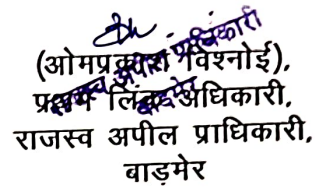 (ओमप्रकाश विश्नोई),
प्रथम लिंक अधिकारी,
राजस्व अपील प्राधिकारी,
बाड़मेर
राजस्व अपील प्राधिकारी
बाड़मेर